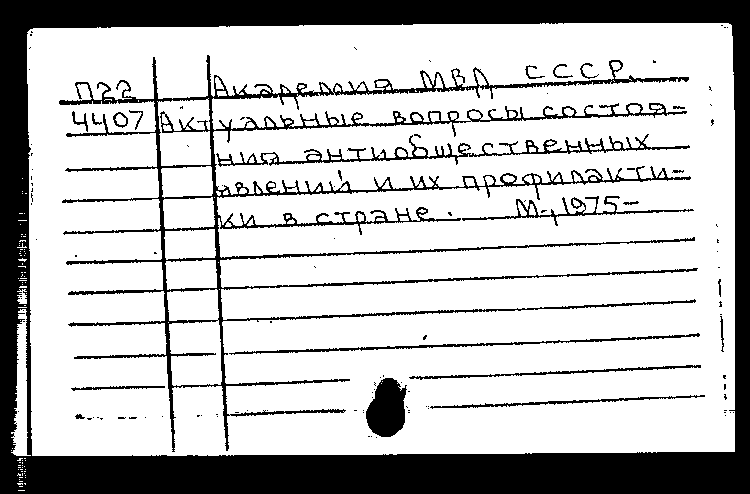 П22 Академия МВД СССР.
4407 Актуальные вопросы состоя-
ния антиобщественных
явлений и их профилакти-
ки в стране. М., 1975-